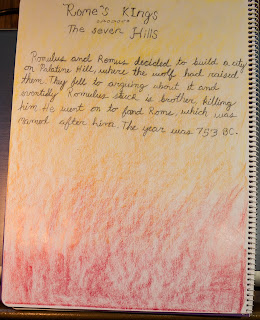 Rome's Kings
The seven Hills
Romulus and Romus decided to build a city
on Palatine Hill, where the wolf had raised
them. They fell to arguing about it and
eventidly Romulus stuck is brother killing
him. He went on to fond Rome, which was
named after him. The year was 753 BC.